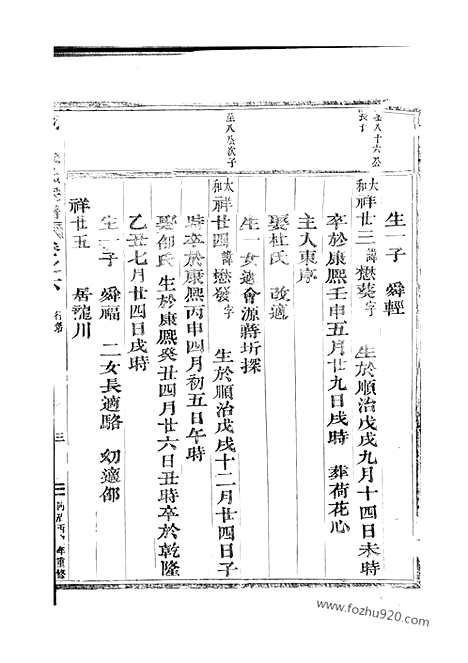 生一子 舜輕
至八十六公長子
太和祥廿三諱懋葵字 生於順治戊戌九月十四日未時
卒於康熙壬申五月廿九日戌時 葬荷花心
主人東序
娶杜氏 改適
生一女適會源蔣圻探
至八公次子
太和祥廿四諱懋發字 生於順治戊戌十二月廿四日子
時卒於康熙丙申四月初五日午時
娶邰氏 生於康熙癸丑四月廿六日丑時卒於乾隆
乙丑七月廿四日戌時
生一子 舜福 二女長適駱 幼適邰
祥廿五 居龍川
三
年重修
www.fozhu920.com